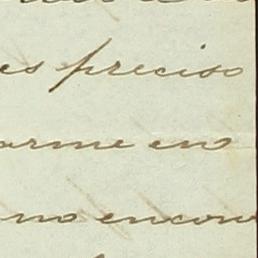 es preciso
arme en
no encon